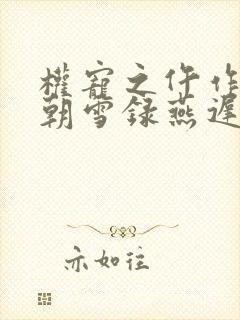 權寵之仵作
朝雪録燕遲
亦如往